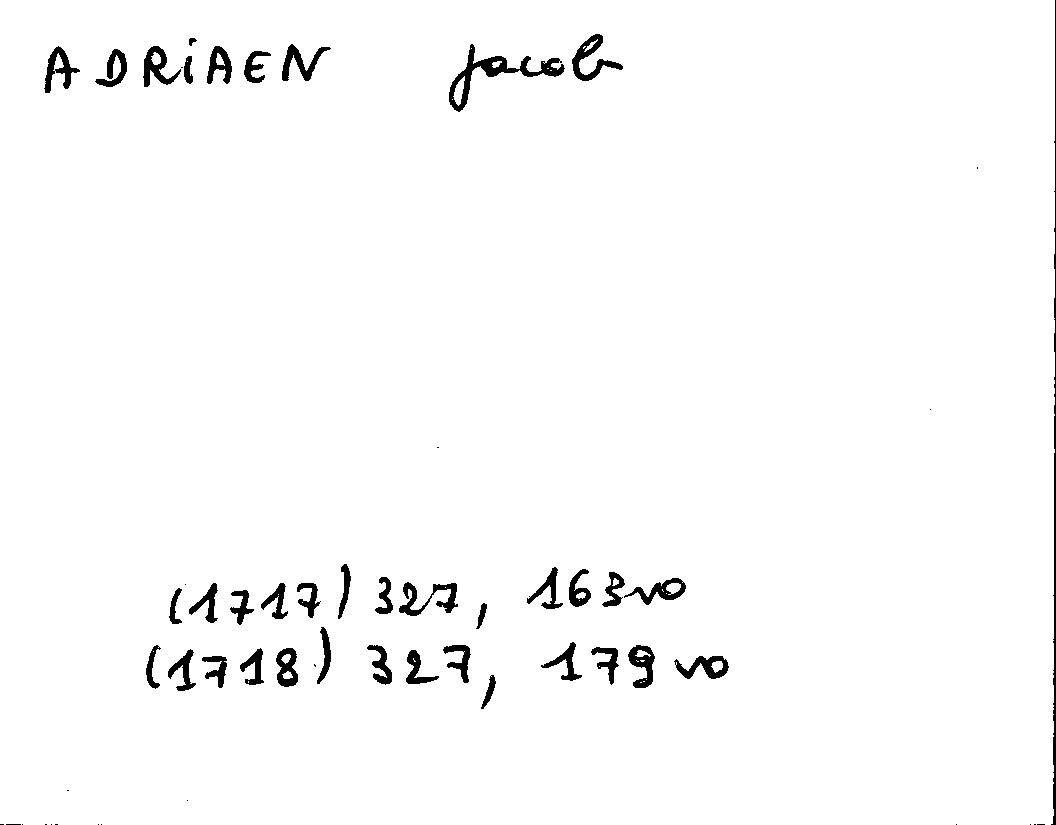 ADRIAEN jacob
(1717) 327, 163vo
(1718) 327, 179vo